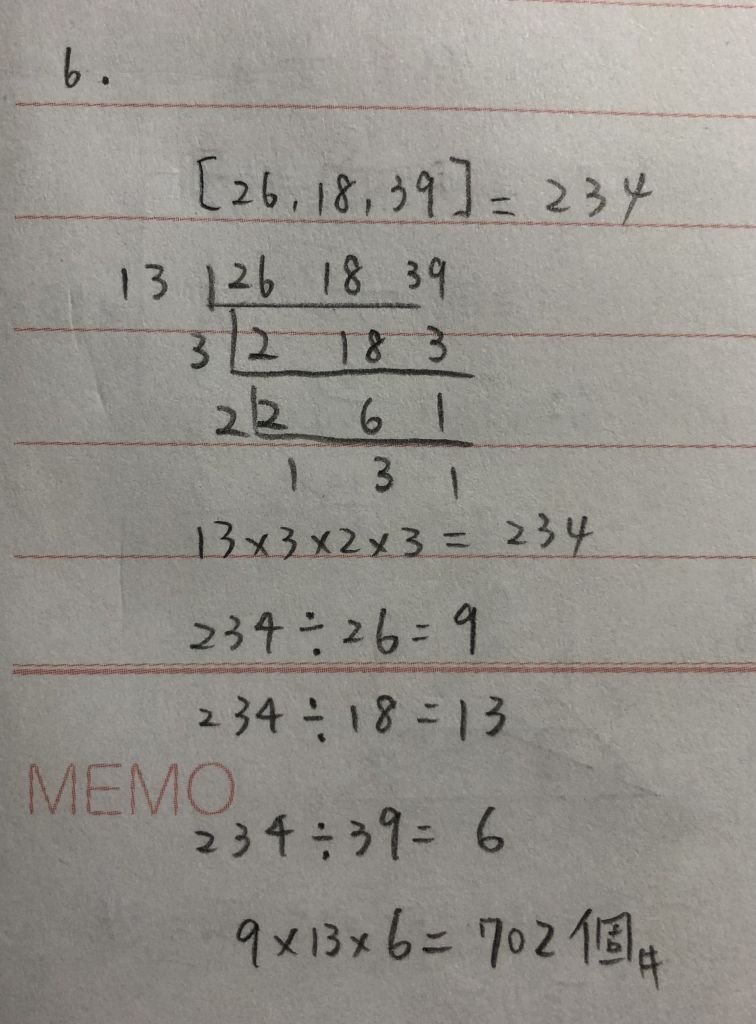 6.
[26,18,39]=234
13 26 18 39
3 2 18 3
2 2 6 1
1 3 1
13×3×2×3=234
234÷26=9
234÷18=13
MEMO
234÷39=6
9×13×6=702個#